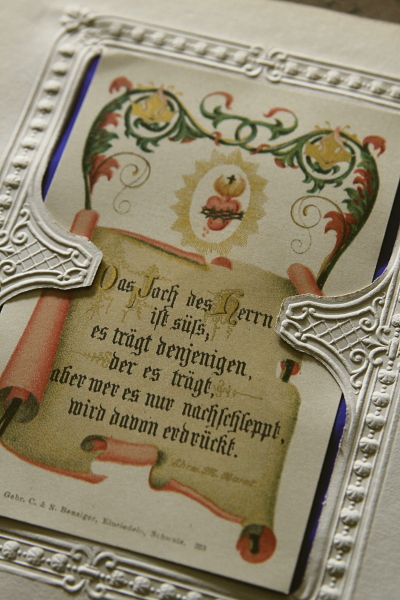 Das Joch des Herrn
ist süss,
es trägt denjenigen,
der es trägt,
aber wer es nur nachschleppt,
wird davon erdrückt.
Gebr. C. & N. Benziger, Einsiedeln, Schweiz.